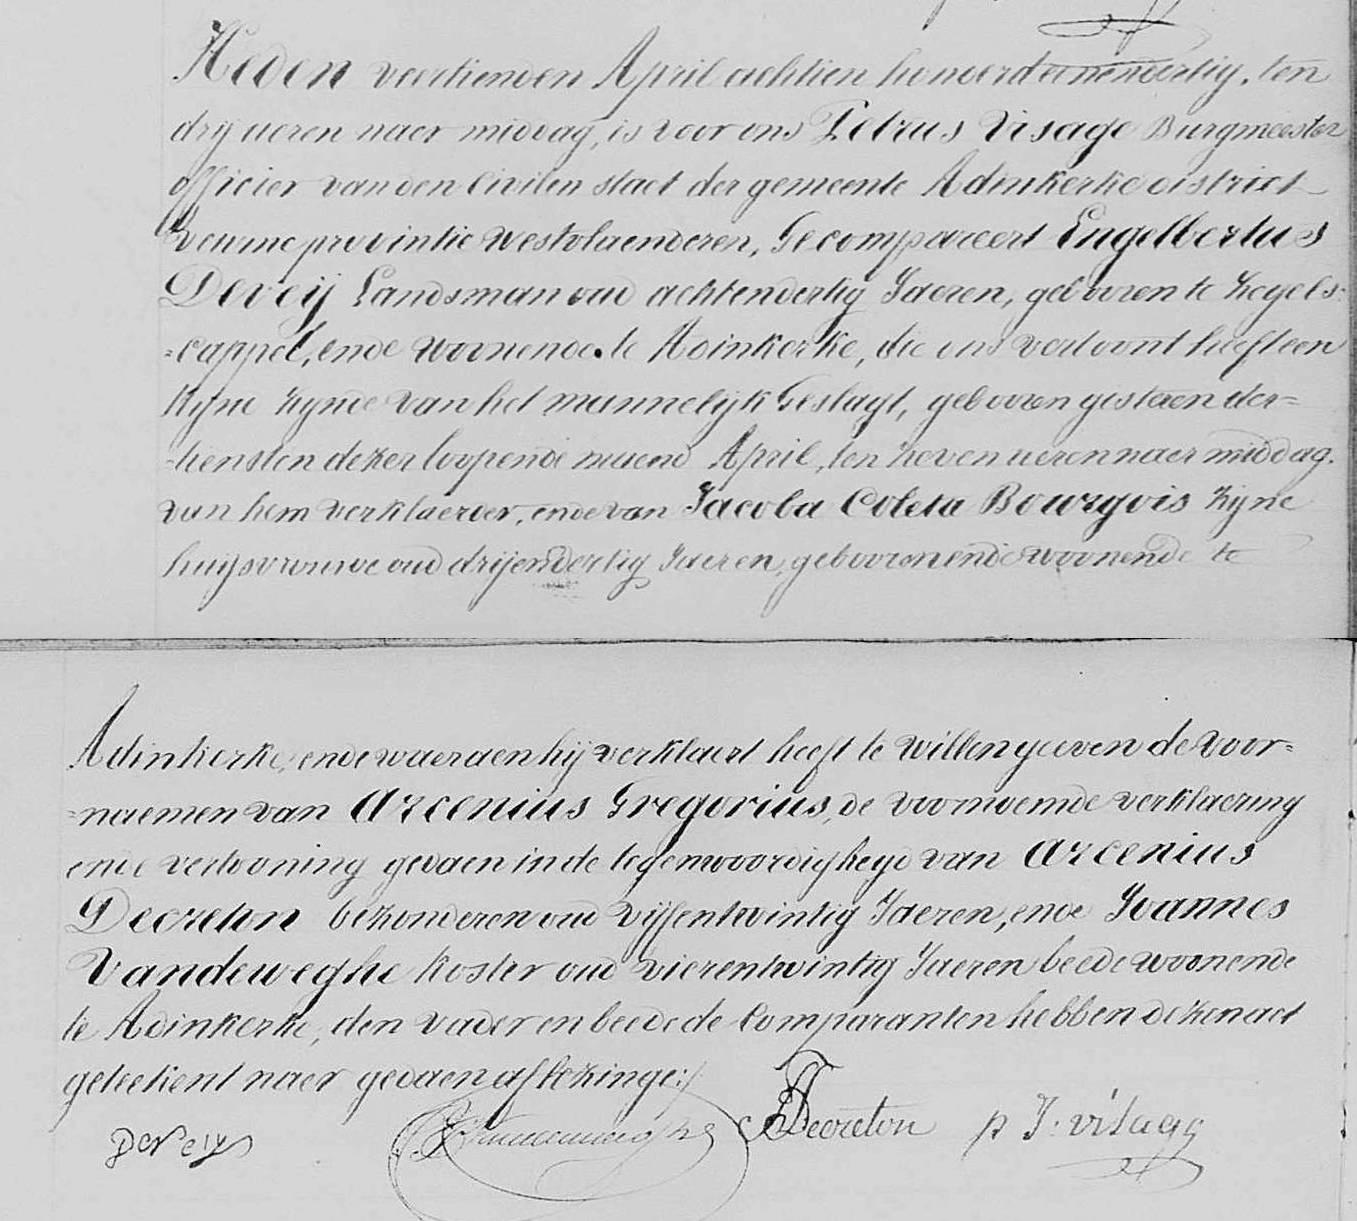 Heden veertienden April achtien honderd eenendertig, ten
drij ueren naer middag, is voor ons Petrus Visage Burgmeester
officier van den Civilen staet der gemeente Adinkerke district
Veurne provintie Westvlaenderen, Gecompareert Engelbertus
Deveij Landsman oud achtendertig Jaeren, gebooren te Zegels=
=cappel, ende woonende te Adinkerke, die ons vertoont heeft een
zijne kynde van het mannelijk Geslagt, gebooren gisteren der=
=tiensten dezer loopende maend April, ten zeven ueren naer middag.
van hem verklaerder, ende van Jacoba Coleta Bourgois zijne
huijsvrouwe oud drijendertig Jaeren, gebooren ende woonende te
Adinkerke, ende waeraen hij verklaert heeft te willen geeven de voor=
=naemen van Arcenius Gregorius, de voornoemde verklaering
ende vertooning gedaen in de tegenwoordigheyd van Arcenius
Decreton bezonderen oud vijfentwintig Jaeren, ende Joannes
Vandeweghe koster oud vierentwintig Jaeren beede woonende
te Adinkerke, den vader en beede de Comparanten hebben dezen act
geteekent naer gedaen aflezinge:/
Deveij A Decreton p J. visage